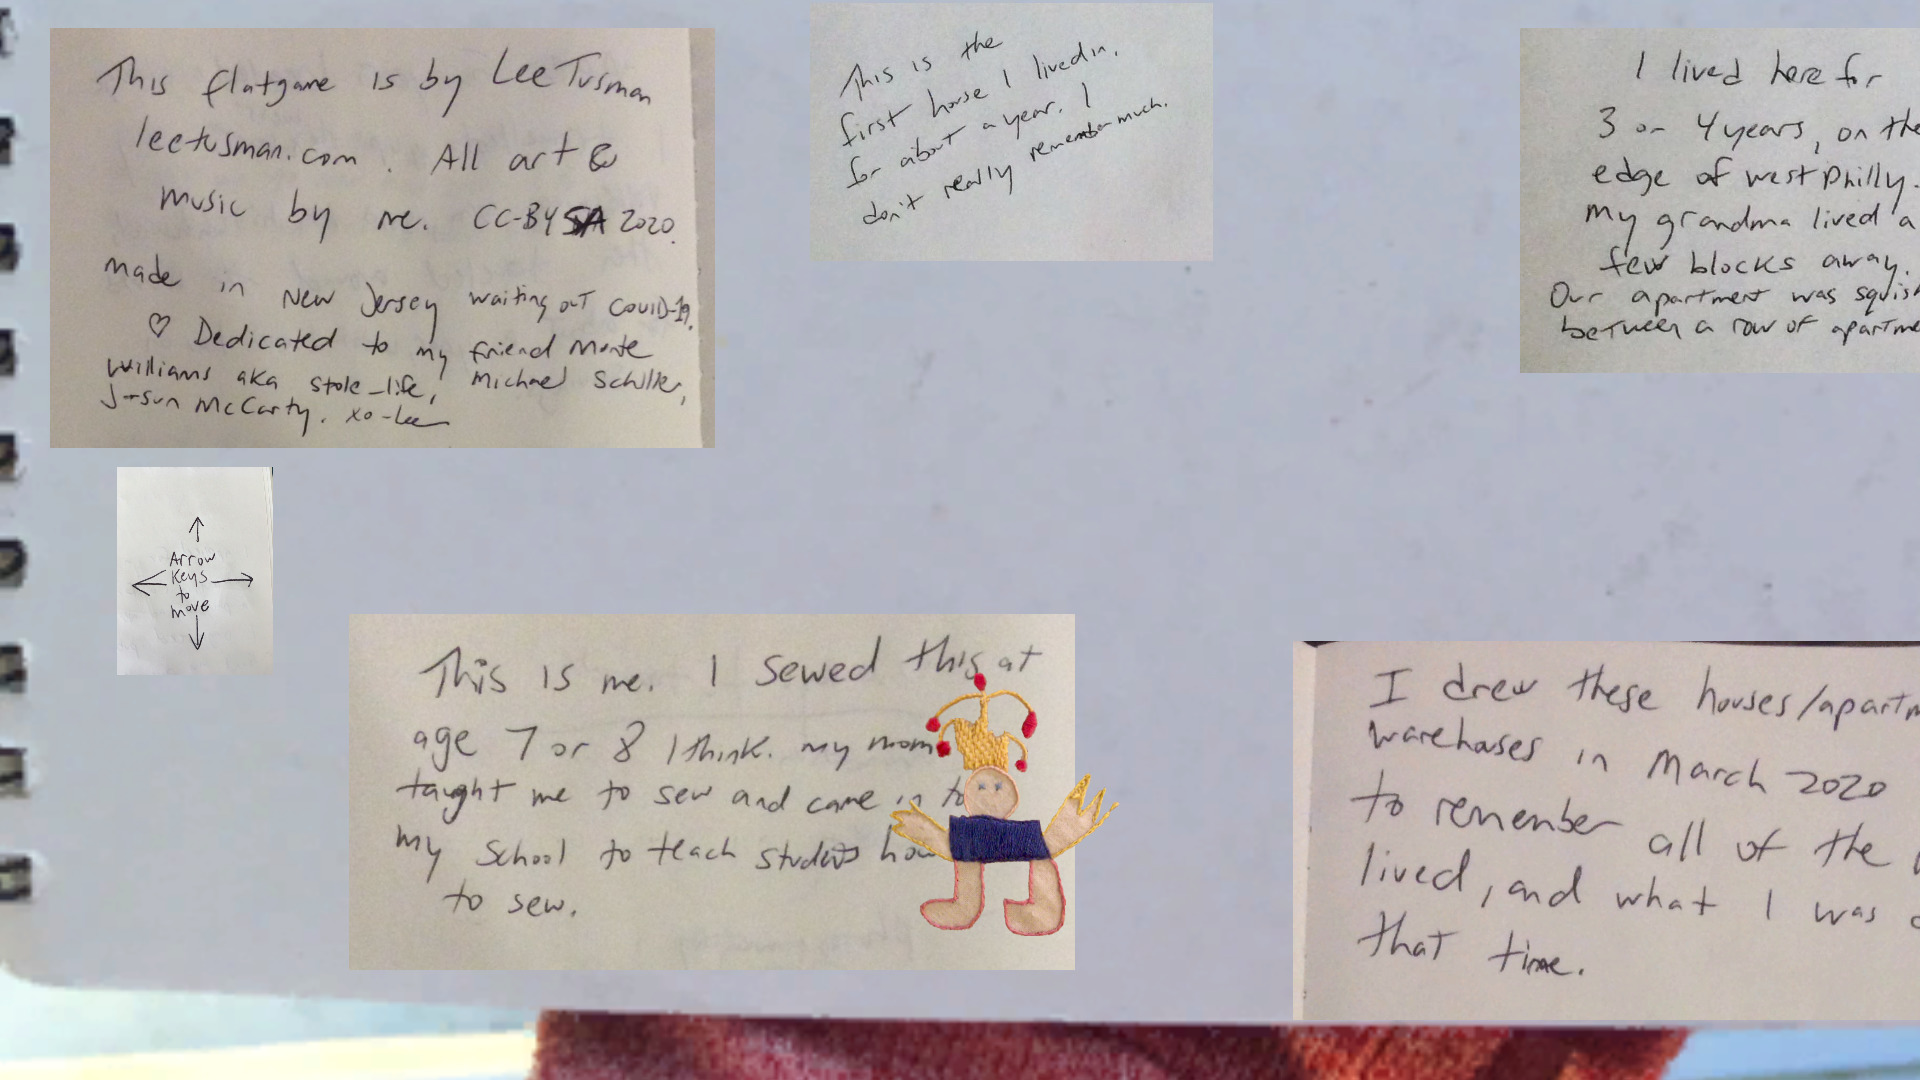 This flatgame is by Lee Tusman
leetusman.com. All art &
music by me. CC-BY SA 2020.
made in New Jersey waiting out COVID-19.
♡ Dedicated to my friend Monte
Williams aka stole_life, Michael Schiller,
J-sun McCarty. xo-Lee
This is the
first house I lived in,
for about a year. I
don't really remember much.
I lived here for
3 or 4 years, on the
edge of west Philly.
my grandma lived a
few blocks away.
Our apartment was squish
between a row of apartme
Arrow
Keys
to
move
This is me. I sewed this at
age 7 or 8 I think. my mom
taught me to sew and came in to
my school to teach students how
to sew.
I drew these houses/apartm
warehouses in March 2020
to remember all of the
lived, and what I was
that time.